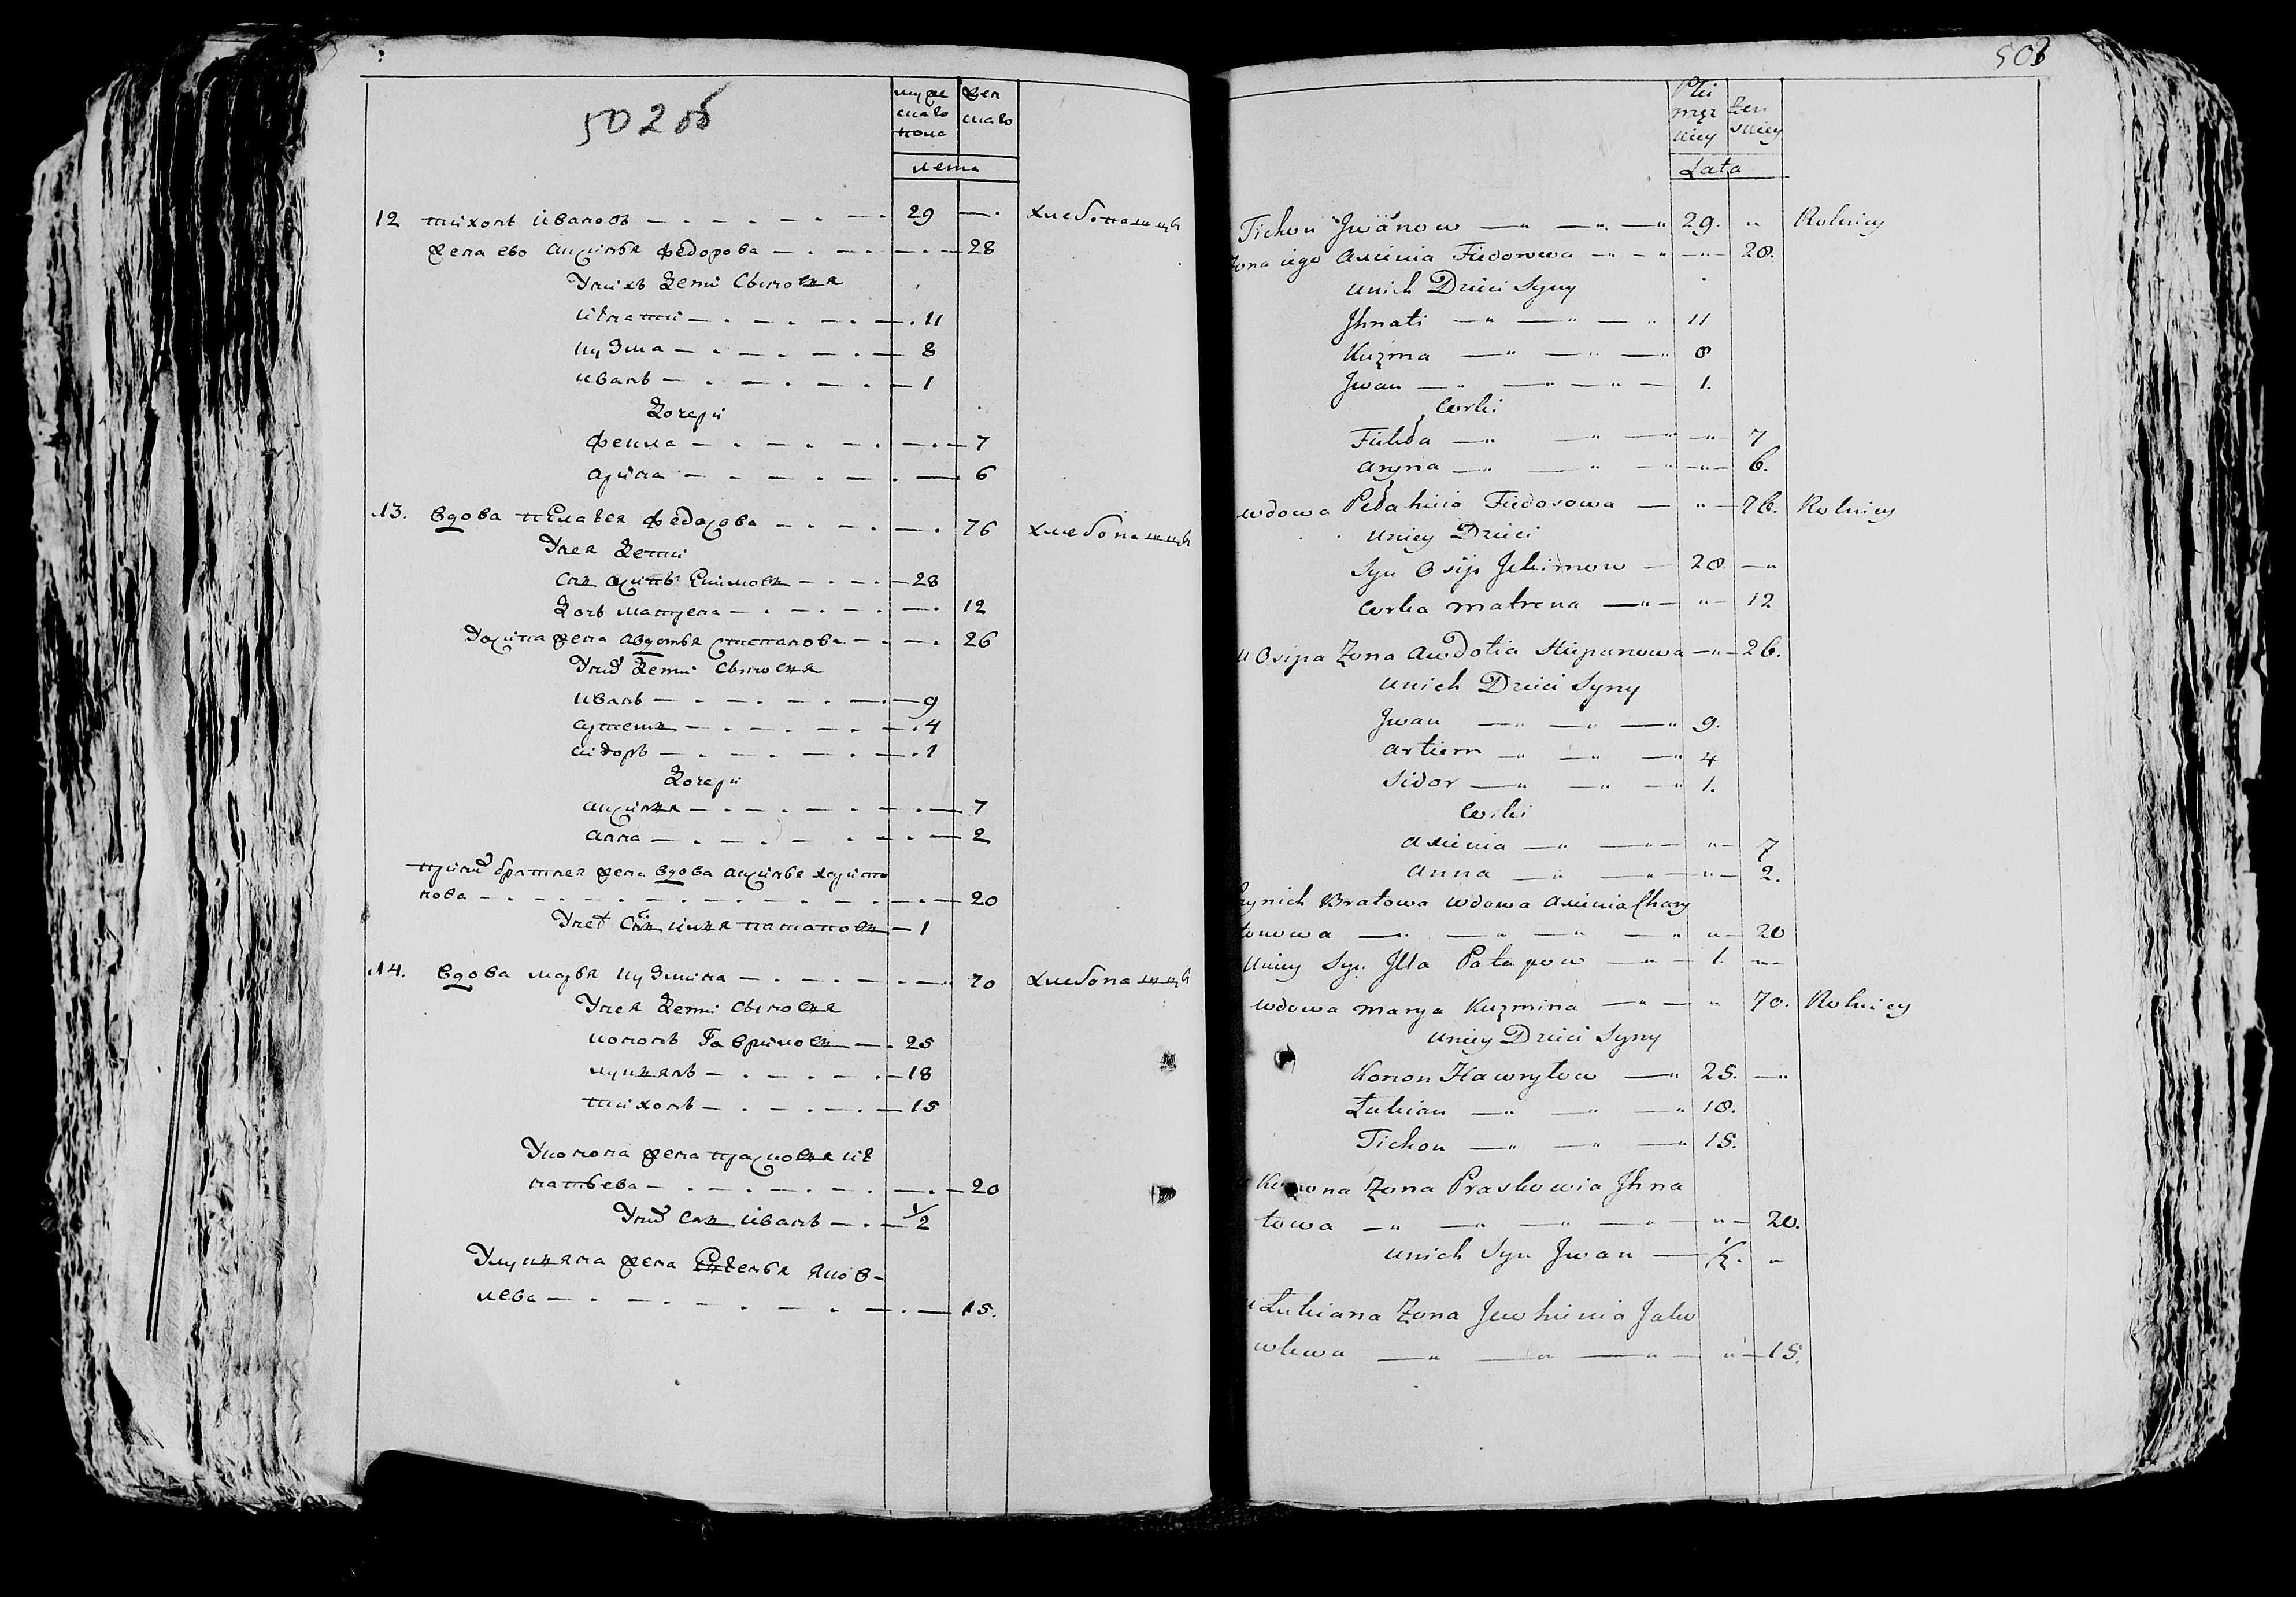 502 об
муже
скаго
пола
жен
скаго
лета
12 тихонъ ивановъ 29 хлебопашцы
жена ево аксинья федорова 28
У них дети сыновья
игнатий 11
кузма 8
иванъ 1
дочери
фекла 7
арина 6
13. вдова пелагея федосова 76 хлебопашцы
У нея дети
сын осипъ Екимовъ 28
дочь матрена 12
У осипа жена авдотья степанова 26
У них дети сыновья
иванъ 9
артемъ 4
сидоръ 1
дочери
аксинья 7
анна 2
при них братняя жена вдова аксинья харито
нова 20
У нея сын илья потаповъ 1
14. вдова марья кузмина 70 хлебопашцы
У нея дети сыновья
кононъ Гавриловъ 25
лукьянъ 18
тихонъ 15
У конона жена прасковья иг
натьева 20
У них сын иванъ 1/2
У лукьяна жена Евгенья яков-
лева 15.
503
Płci
męz
kiey
Zeń
skiey
Lata
Tichon Jwanow 29. Rolnicy
Zona iego Axinia Fiedorowa 28.
u nich Dzieci Syny
Jhnati 11
Kuzma 8
Jwan 1.
Corki
Fiekła 7
Aryna 6.
wdowa Pełahiia Fiedosowa 76. Rolnicy
u niey Dzieci
Syn Osip Jekimow 28
Corka Matrena 12
u Osipa Zona Awdotia Stiepanowa 26.
u nich Dzieci Syny
Jwan 9.
Artiem 4
Sidor 1.
Corki
Axinia 7
Anna 2.
przy nich Bratowa wdowa Axinia Chary
tonowa 20
u niey Syn Jlla Potapow 1.
wdowa Marya Kuzmina 70. Rolnicy
u niey Dzieci Syny
Konon Hawryłow 25.
Łukian 18.
Tichon 15.
Konona Zona Praskowia Jhna
towa 20.
u nich Syn Jwan 1/2.
u Łukiana Zona Jewhienia Jako
wlewa 15.